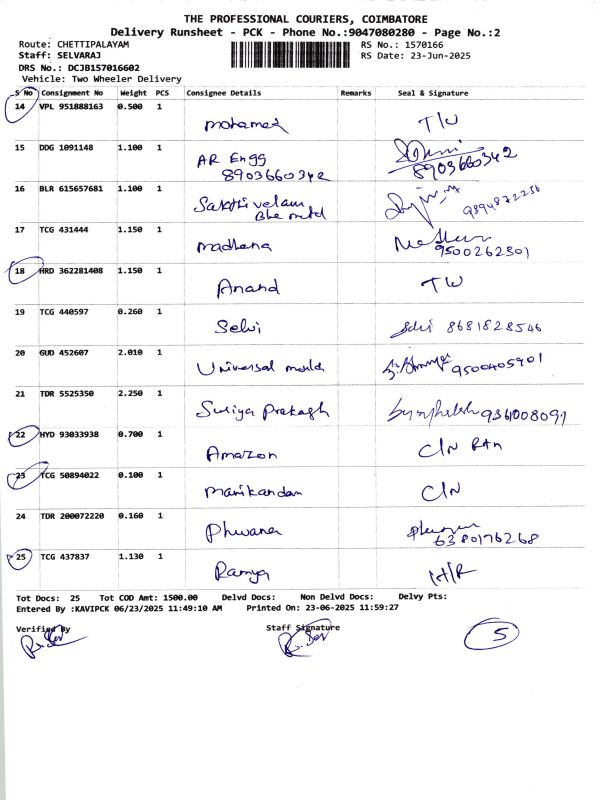 THE PROFESSIONAL COURIERS, COIMBATORE
Delivery Runsheet - PCK - Phone No.:9047080280 - Page No.:2
Route: CHETTIPALAYAM RS No.: 1570166
Staff: SELVARAJ RS Date: 23-Jun-2025
DRS No.: DCJB157016602
Vehicle: Two Wheeler Delivery
S No Consignment No Weight PCS Consignee Details Remarks Seal & Signature
14 VPL 951888163 0.500 1
mohamed T/W
15 DDG 1091148 1.100 1
AR Engg
8903660342 8903660342
16 BLR 615657681 1.100 1
Sakthi velam 9894872256
17 TCG 431444 1.150 1
madhana
9500262301
18 HRD 362281408 1.150 1
Anand T/W
19 TCG 440597 0.260 1
Selvi 8681828546
20 GUD 452607 2.010 1
Universal mould 9500405901
21 TDR 5525350 2.250 1
Suriya Prakash 9361008091
22 HYD 93033938 0.700 1
Amazon C/N
23 TCG 50894022 0.100 1
Manikandan C/N
24 TDR 200072220 0.160 1
Phuvana
6380176268
25 TCG 437837 1.130 1
Ramya H/R
Tot Docs: 25 Tot COD Amt: 1500.00 Delvd Docs: Non Delvd Docs: Delvy Pts:
Entered By :KAVIPCK 06/23/2025 11:49:10 AM Printed On: 23-06-2025 11:59:27
Verified By Staff Signature
5